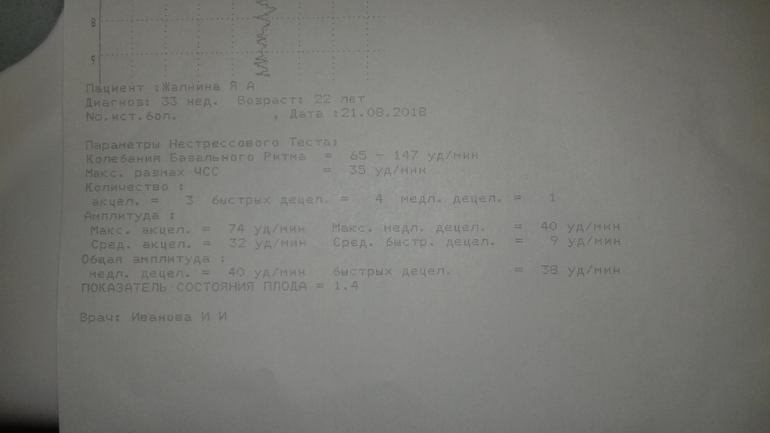 8
9
Пациент :Жалнина Я А
Диагноз: 33 нед. Возраст: 22 лет
No.ист.бол. , Дата :21.08.2018
Параметры Нестрессового Теста:
Колебания Базального Ритма = 65 - 147 уд/мин
Макс. размах ЧСС = 35 уд/мин
Количество :
акцел. = 3 быстрых децел. = 4 медл. децел. = 1
Амплитуда :
Макс. акцел. = 74 уд/мин Макс. медл. децел. = 40 уд/мин
Сред. акцел. = 32 уд/мин Сред. быстр. децел. = 9 уд/мин
Общая амплитуда :
медл. децел. = 40 уд/мин быстрых децел. = 38 уд/мин
ПОКАЗАТЕЛЬ СОСТОЯНИЯ ПЛОДА = 1.4
Врач: Иванова И И